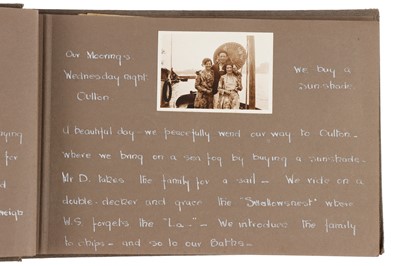 aying
for
Our Moorings
Wednesday night
Oulton
We buy a
sun-shade.
A beautiful day - we peacefully wend our way to Oulton -
where we bring on a sea fog by buying a sunshade -
Mr D. takes the family for a sail - We ride on a
double-decker and grace the "Swallowsnest" where
W.S. forgets the "La..." - We introduce the family
to chips - and so to our Baths -